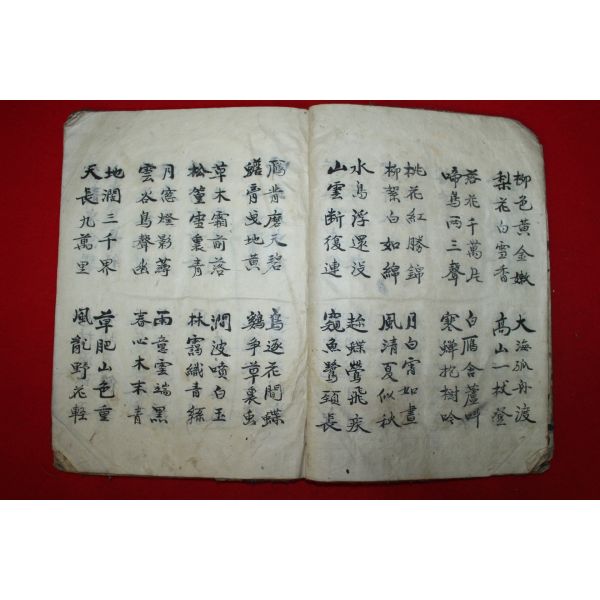 柳色黃金嫩
梨花白雪香
落花千萬片
啼鳥兩三聲
桃花紅勝錦
柳絮白如綿
水鳥浮還没
山雲断復連
大海孤舟渡
高山一杖登
白鴈含蘆叫
寒蟬抱樹吟
月白宵如晝
風清夏似秋
趂蝶鶯飛疾
窺魚鷺頸長
鴈背磨天碧
骨曳地黄
草木霜前落
松篁雪裏青
月窓燈影薄
雲谷鳥聲幽
地濶三千界
天長九萬里
鳥逐花間蝶
鷄爭草裏虫
澗波噴白玉
林靄織青絲
雨意雲端黑
春心木末青
草肥山色重
風亂野花輕